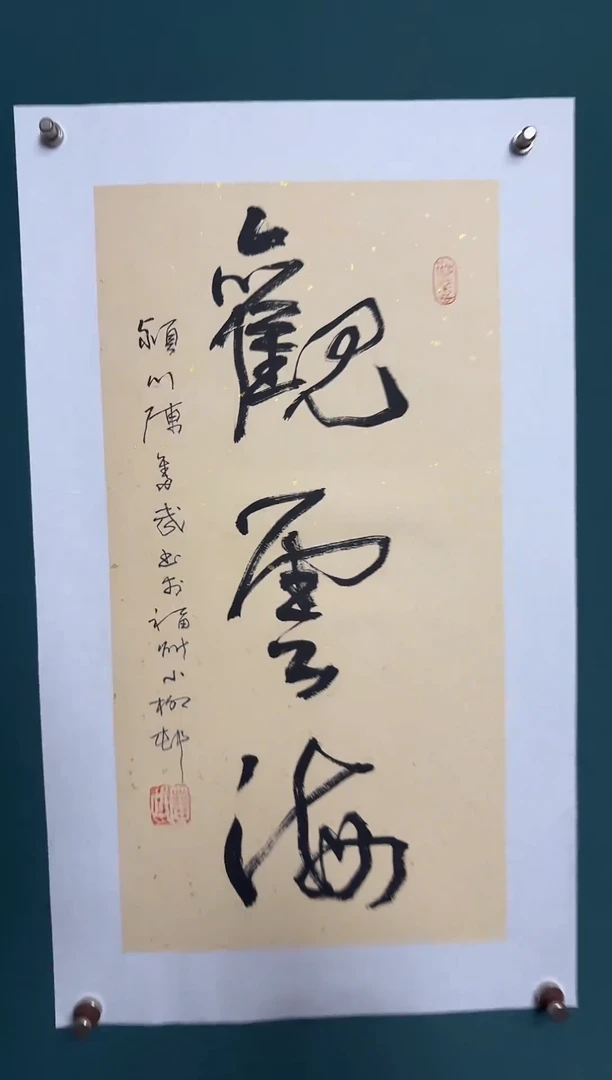 觀雲海
潁川陳 武書於福州小柳邨